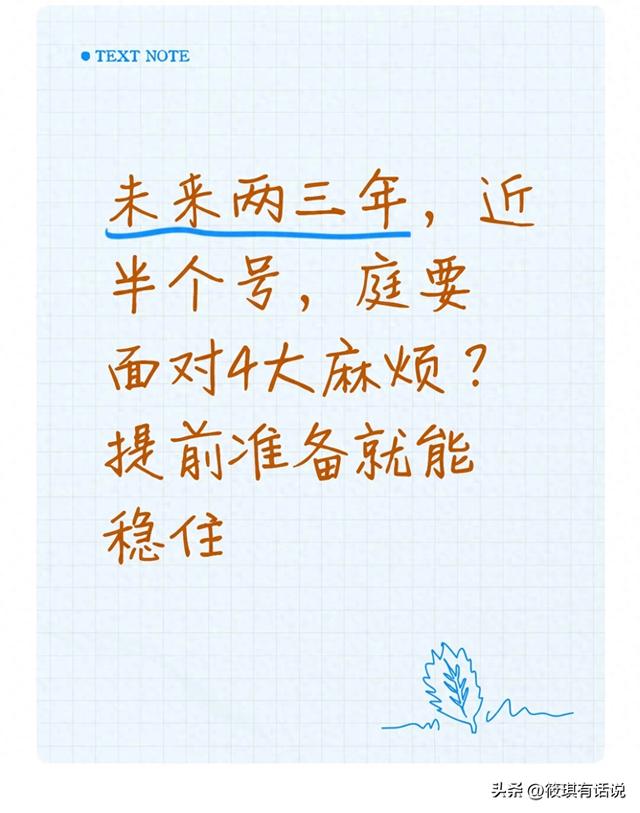 TEXT NOTE
未来两三年，近
半个号，庭要
面对4大麻烦？
提前准备就能
稳住
头条 @筱琪有话说